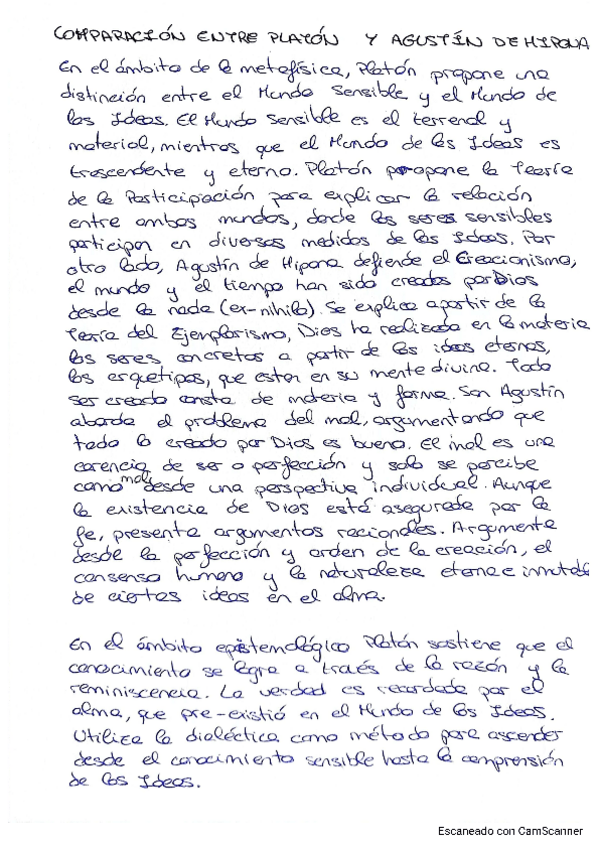 COMPARACIÓN ENTRE PLATÓN Y AGUSTÍN DE HIPONA
En el ámbito de la metafísica, Platón propone una
distinción entre el Mundo Sensible y el Mundo de
las Ideas. El Mundo Sensible es el terrenal y
material, mientras que el Mundo de las Ideas es
trascendente y eterno. Platón propone la Teoría
de la Participación para explicar la relación
entre ambos mundos, donde los seres sensibles
participan en diversas medidas de las Ideas. Por
otro lado, Agustín de Hipona defiende el Creacionismo,
el mundo y el tiempo han sido creados por Dios
desde la nada (ex-nihilo). Se explica a partir de la
Teoría del Ejemplarismo, Dios ha realizado en la materia
los seres concretos a partir de las ideas eternas,
los arquetipos, que están en su mente divina. Todo
ser creado consta de materia y forma. San Agustín
aborda el problema del mal, argumentando que
todo lo creado por Dios es bueno. El mal es una
carencia de ser o perfección y solo se percibe
como mal desde una perspectiva individual. Aunque
la existencia de Dios está asegurada por la
fe, presenta argumentos racionales. Argumenta
desde la perfección y orden de la creación, el
consenso humano y la naturaleza eterna e inmutable
de ciertas ideas en el alma.
En el ámbito epistemológico Platón sostiene que el
conocimiento se logra a través de la razón y la
reminiscencia. La verdad es recordada por el
alma, que pre-existió en el Mundo de las Ideas.
Utiliza la dialéctica como método para ascender
desde el conocimiento sensible hasta la comprensión
de las Ideas.
Escaneado con CamScanner